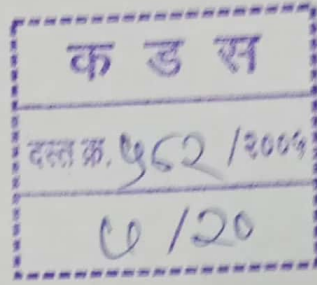 क ड स
दस्त क्र. ५८२ /२००५
७ /२०